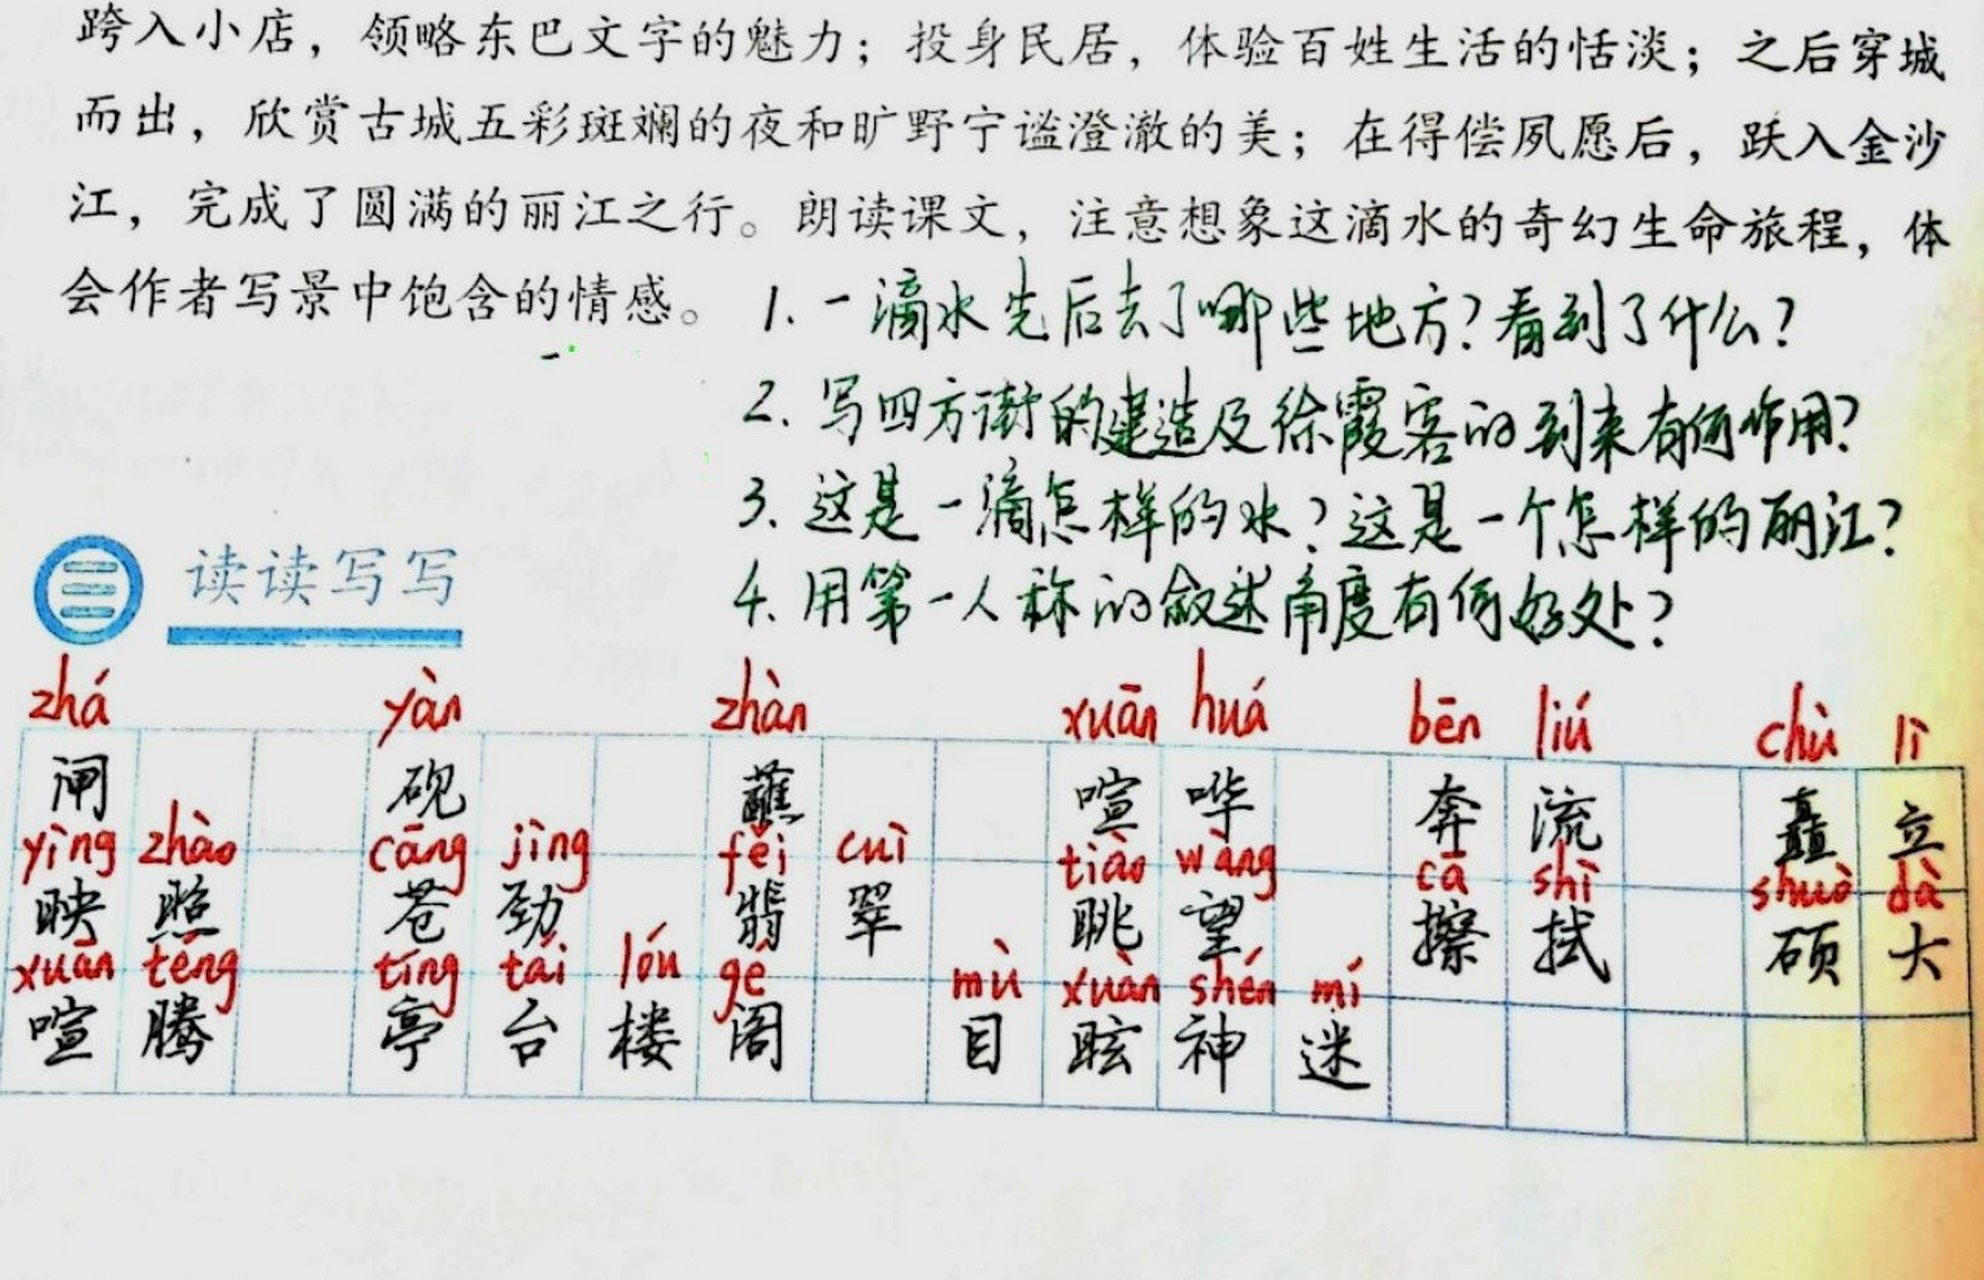 跨入小店，领略东巴文字的魅力；投身民居，体验百姓生活的恬淡；之后穿城
而出，欣赏古城五彩斑斓的夜和旷野宁谧澄澈的美；在得偿夙愿后，跃入金沙
江，完成了圆满的丽江之行。朗读课文，注意想象这滴水的奇幻生命旅程，体
会作者写景中饱含的情感。 1. 一滴水先后去了哪些地方？看到了什么？
2. 写四方街的建造及徐霞客的到来有何作用？
3. 这是一滴怎样的水？这是一个怎样的丽江？
三 读读写写
4. 用第一人称的叙述角度有何好处？
zhá yàn zhàn xuān huá bēn liú chù lì
闸 砚 蘸 喧哗 奔流 矗立
yìng zhào cāng jìng fěi cuì tiào wàng cā shì shuò dà
映照 苍劲 翡翠 眺望 擦拭 硕大
xuān téng tíng tái lóu gé mù xuàn shén mí
喧腾 亭台楼阁 目眩神迷